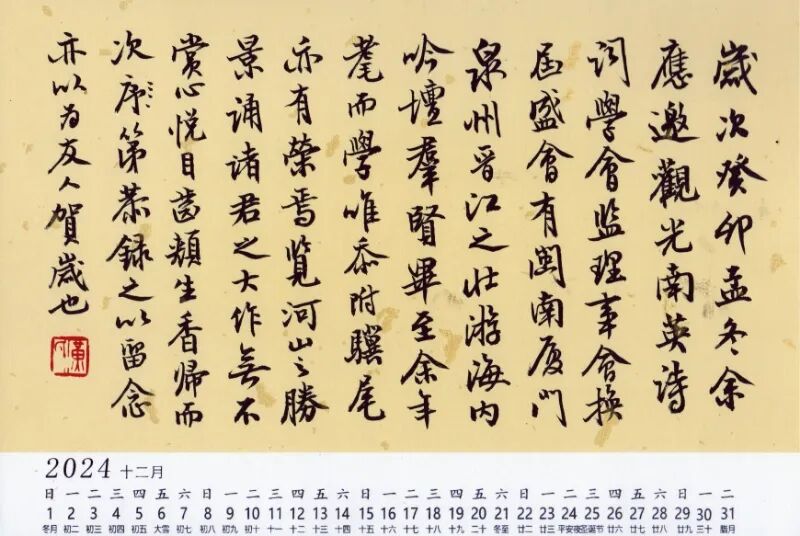 歲次癸卯孟冬余
應邀觀光南英詩
词學會监理事會换
届盛會有閩南厦门
泉州晋江之壮游海内
吟壇羣賢畢至余年
耄而學唯忝附驥尾
亦有榮焉览河山之勝
景诵诸君之大作無不
賞心悦目齒頰生香歸而
次序第恭録之以留念
亦以为友人賀歲也
2024 十二月
日 一 二 三 四 五 六 日 一 二 三 四 五 六 日 一 二 三 四 五 六 日 一 二 三 四 五 六 日 一 二
1 2 3 4 5 6 7 8 9 10 11 12 13 14 15 16 17 18 19 20 21 22 23 24 25 26 27 28 29 30 31
冬月 初二 初三 初四 初五 大雪 初七 初八 初九 初十 十一 十二 十三 十四 十五 十六 十七 十八 十九 二十 冬至 廿二 廿三 平安夜 圣诞节 廿六 廿七 廿八 廿九 三十 腊月